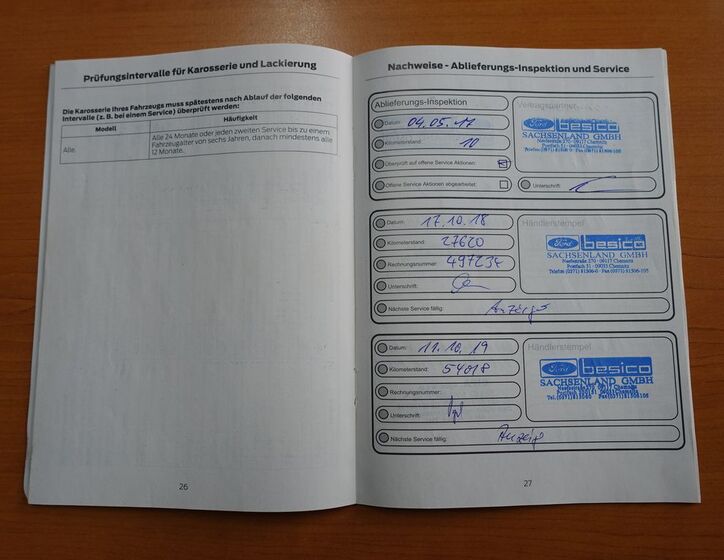 Prüfungsintervalle für Karosserie und Lackierung
Die Karosserie Ihres Fahrzeugs muss spätestens nach Ablauf der folgenden
Intervalle (z. B. bei einem Service) überprüft werden:
Modell
Häufigkeit
Alle.
Alle 24 Monate oder jeden zweiten Service bis zu einem
Fahrzeugalter von sechs Jahren, danach mindestens alle
12 Monate.
26
Nachweise - Ablieferungs-Inspektion und Service
Ablieferungs-Inspektion
Datum: 04.05.17
Kilometerstand: 10
Überprüft auf offene Service Aktionen:
Offene Service Aktionen abgearbeitet:
Vertragspartner
Ford besico
SACHSENLAND GMBH
Neefestraße 270 · 09117 Chemnitz
Unterschrift:
Datum: 17.10.18
Kilometerstand: 27620
Rechnungsnummer: 497234
Unterschrift:
Nächste Service fällig: Anzeige
Händlerstempel
Ford besico
SACHSENLAND GMBH
Neefestraße 270 · 09117 Chemnitz
Postfach 31 · 09033 Chemnitz
Telefon (0371) 81506-0 · Fax (0371) 81506-105
Datum: 11.10.19
Kilometerstand: 54018
Rechnungsnummer:
Unterschrift:
Nächste Service fällig: Anzeige
Händlerstempel
Ford besico
SACHSENLAND GMBH
Neefestraße 270 09117 Chemnitz
27